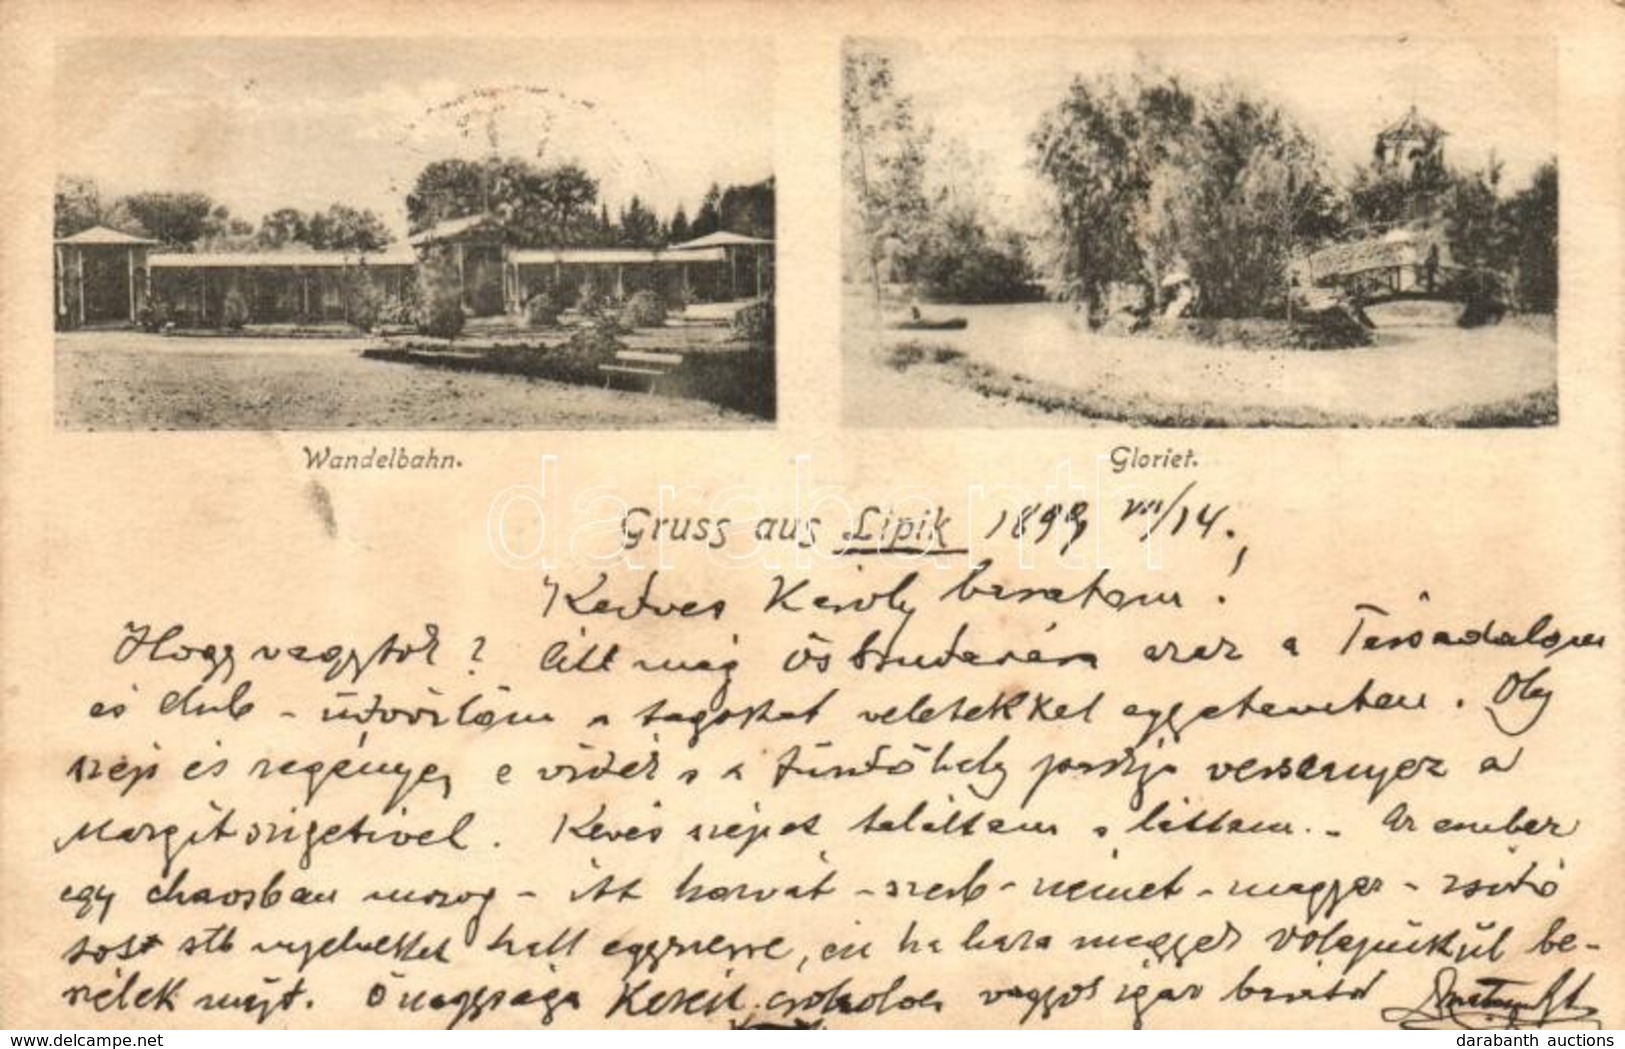 Wandelbahn.
Gloriet.
darabanth
Gruss aus Lipik 1899 VII/14.
Kedves Károly barátom!
Hogy vagytok? Itt még Ósbudavára a Társadalom
és club - üdvözlöm a tagokat veletekkel egyetemben. Oly
szép és regényes e vidék s a fürdőhely parkja versenyez a
Margitszigetivel. Kevés szépet találtam s láttam. - Az ember
egy chaosban mozog - itt horvát - szerb - német - magyar - zsidó
tót stb nyelveket hall egyszerre, én ha haza megyek volapükül be-
szélek majd. Ő nagysága kezeit csókolom vagyok igaz barátod
delcampe.net
darabanth auctions